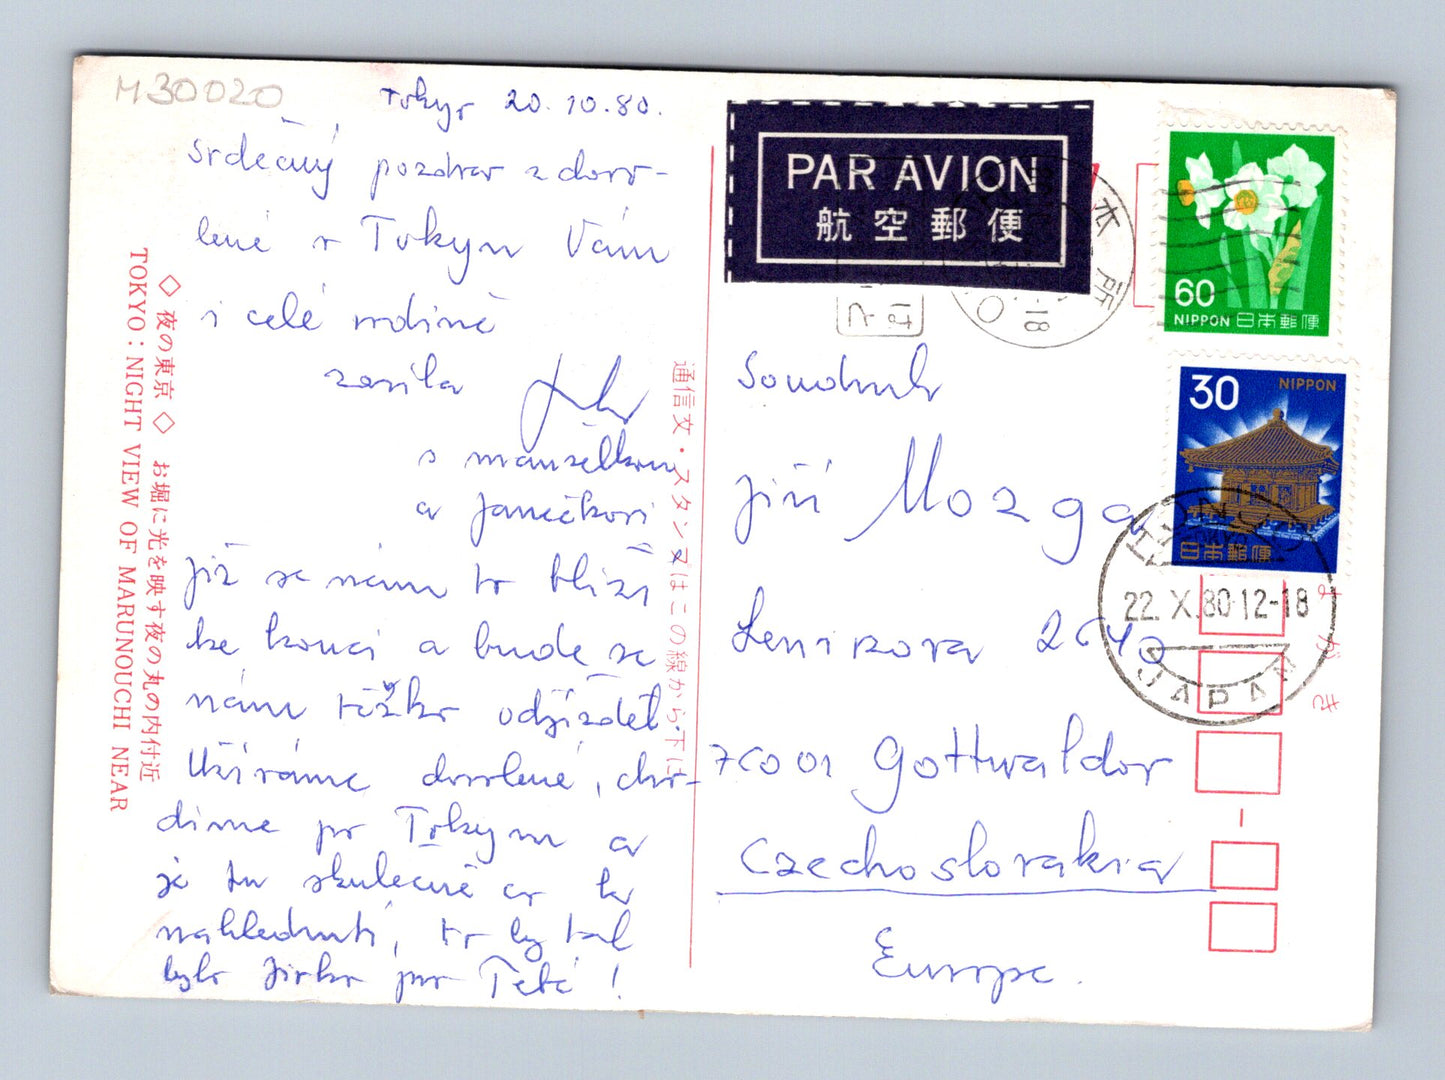 M30020
Tokyo 20.10.80.
Srdečný pozdrav z dovo-
lené v Tokyu Vám
i celé rodině
zasílá
s manželkou
a Janečkovi
Již se nám to blíží
ke konci a bude se
nám těžko odjíždět.
Užíváme dovolené, cho-
díme po Tokyu a
je tu skutečně co k
nahlédnutí, to by tak
bylo Jirko pro Tebe!
◇ 夜の東京 ◇ お堀に光を映す夜の丸の内付近
TOKYO: NIGHT VIEW OF MARUNOUCHI NEAR
通信文・スタンプはこの線から下に
PAR AVION
航空郵便
60
NIPPON 日本郵便
30
NIPPON
日本郵便
22. X. 80. 12-18
JAPAN
Soudruh
Jiří Mozga
Leninova
76001 Gottwaldov
Czechoslovakia
Europe.